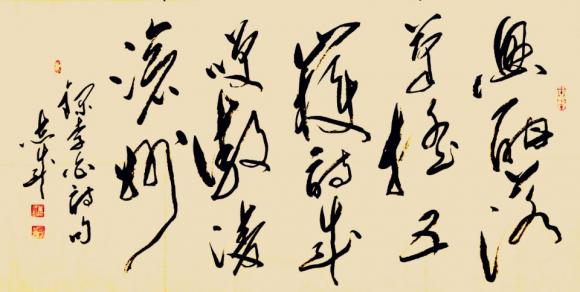 興酣落
筆搖五
嶽詩成
嘯傲凌
滄洲
錄李白詩句